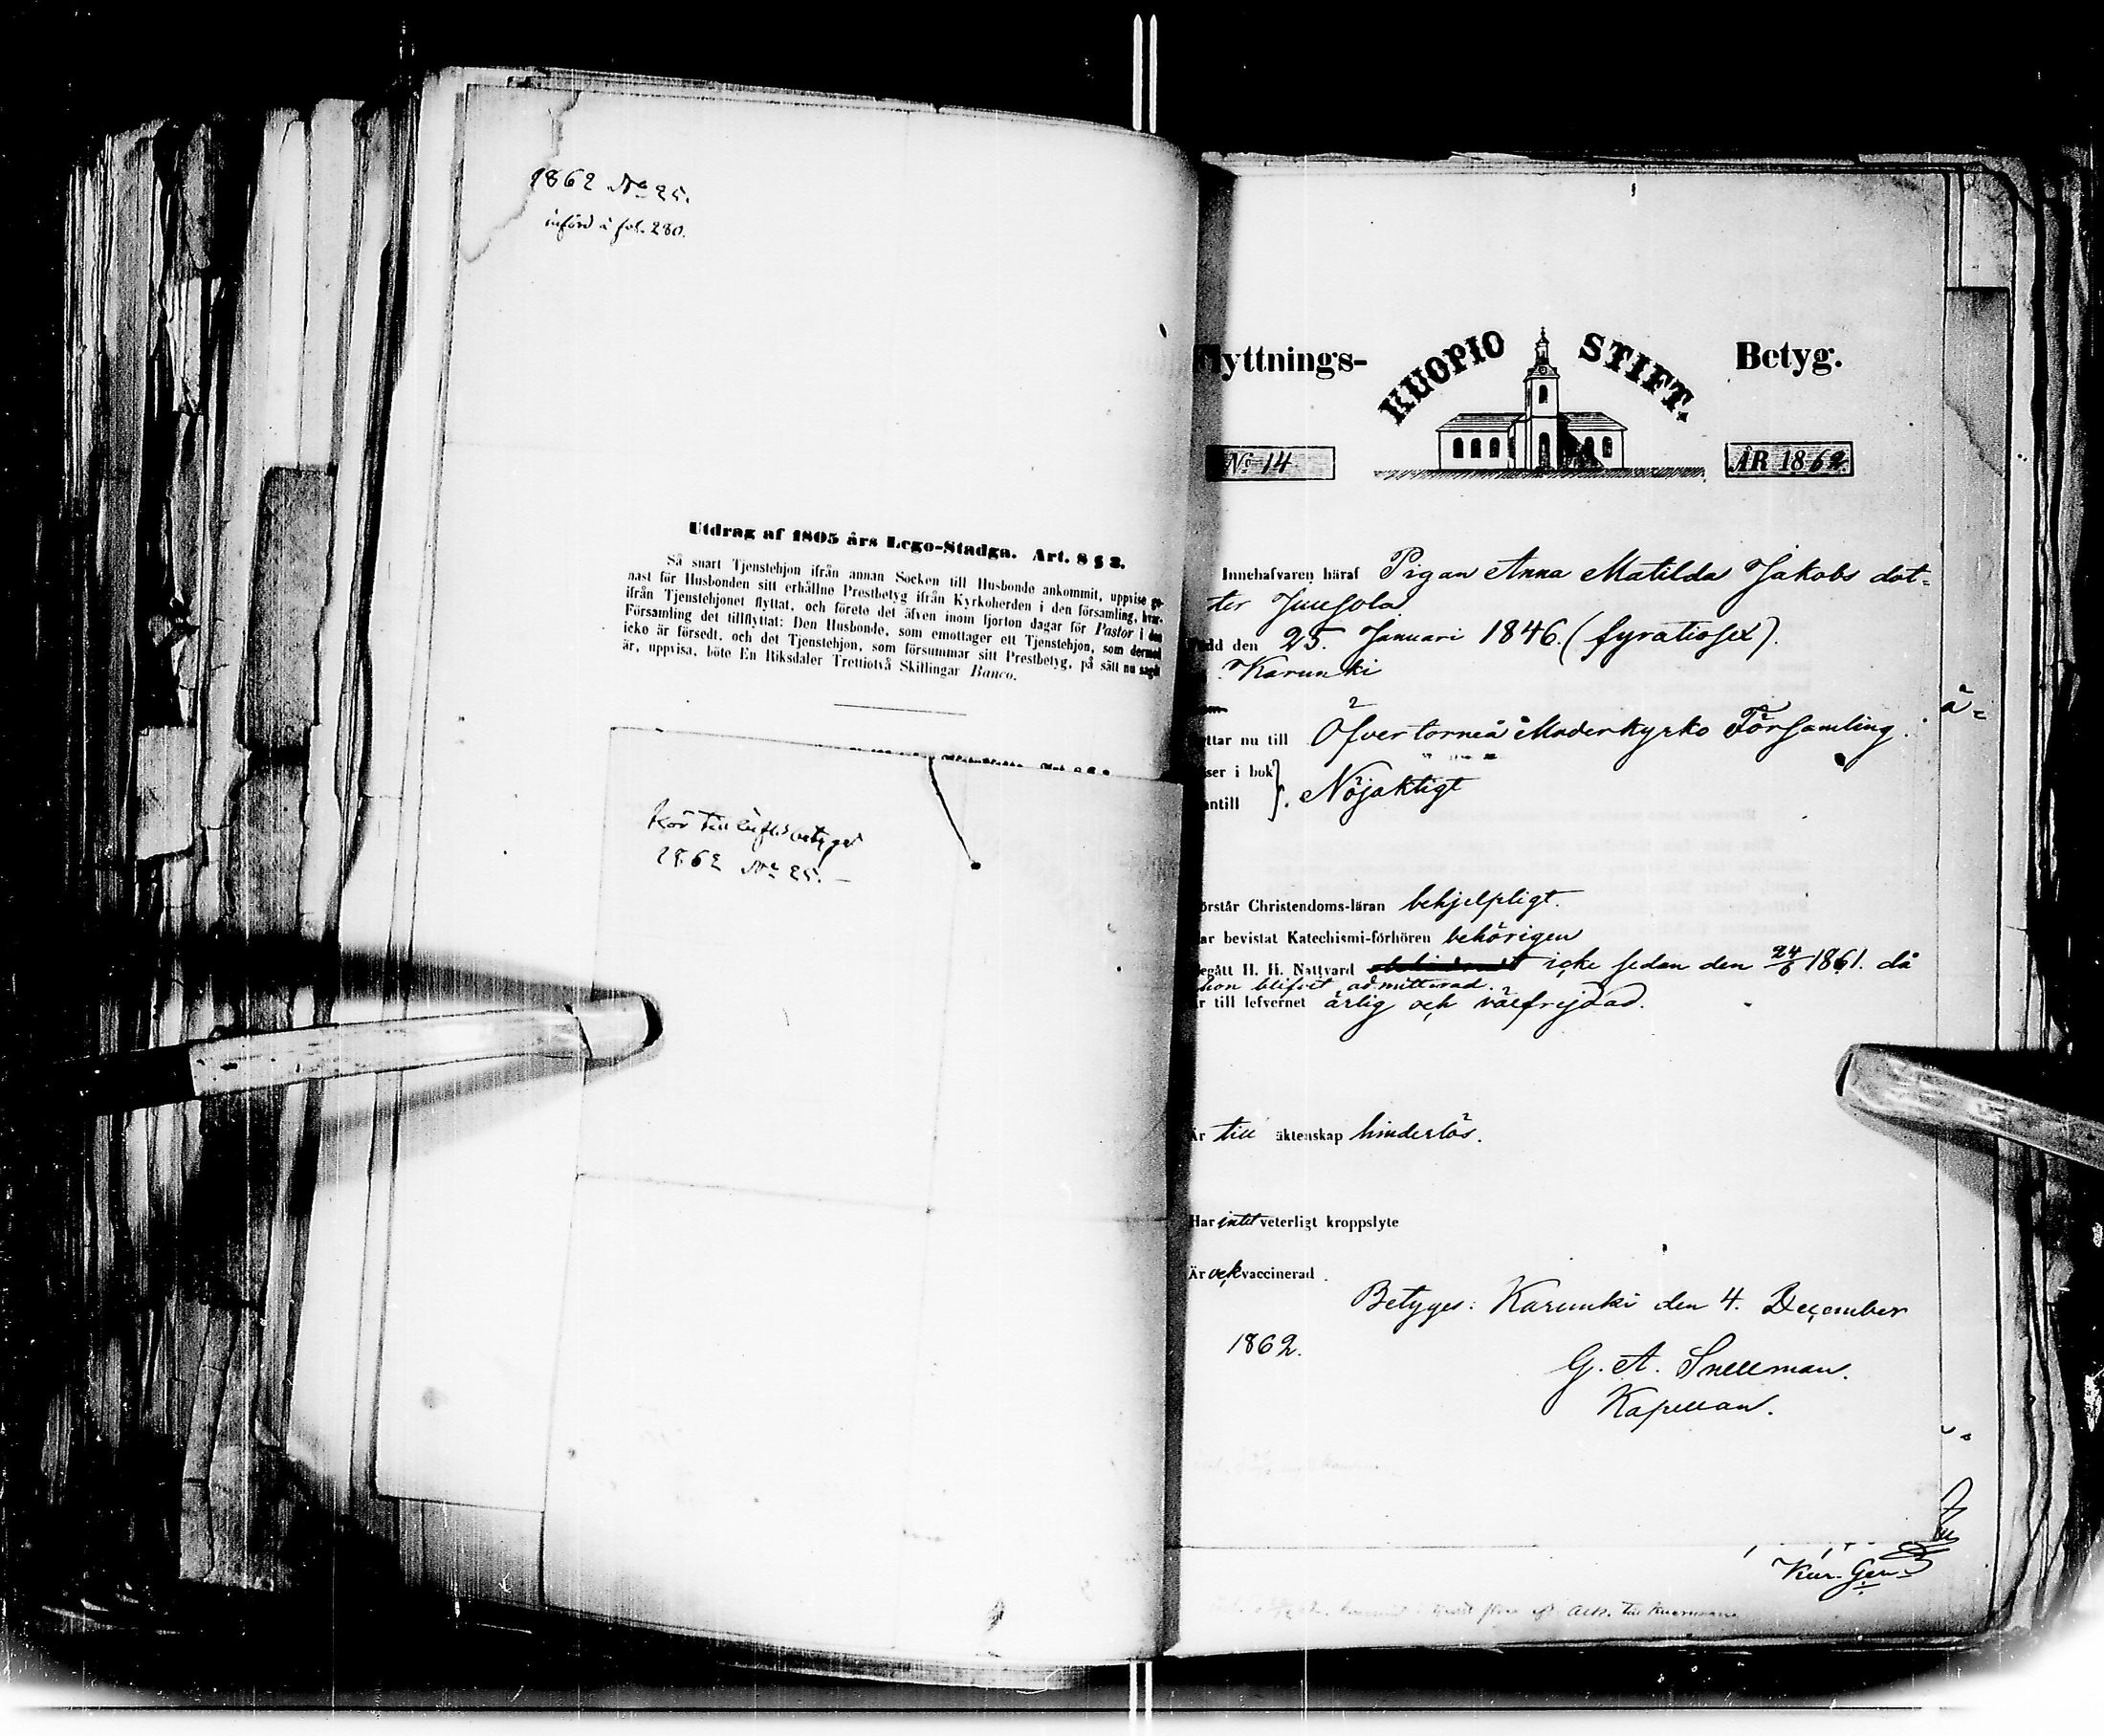 1862 No 25.
införd å fol. 280.
Utdrag af 1805 års Lego-Stadga. Art. 8 § 3.
Så snart Tjenstehjon ifrån annan Socken till Husbonde ankommit, uppvise ge-
nast för Husbonden sitt erhållne Prestbetyg ifrån Kyrkoherden i den församling, hvar-
ifrån Tjenstehjonet flyttat, och förete det äfven inom fjorton dagar för Pastor i den
Församling det tillflyttat: Den Husbonde, som emottager ett Tjenstehjon, som dermed
icke är försedt, och det Tjenstehjon, som försummar sitt Prestbetyg, på sätt nu sagdt
är, uppvisa, böte En Riksdaler Trettiotvå Skillingar Banco.
1862 No 25.
Flyttnings- KUOPIO STIFT. Betyg.
No 14 ÅR 1862
Innehafvaren häraf Pigan Anna Matilda Jakobs dot-
ter Juusola
född den 25. Januari 1846. (fyratiosex).
Karunki
ttar nu till Öfvertorneå Moderkyrko Församling.
ser i bok
antill } Nöjaktigt
örstår Christendoms-läran behjelpligt.
ar bevistat Katechismi-förhören behörigen
egått H. H. Nattvard icke sedan den 24/6 1861. då
hon blifvit admitterad.
r till lefvernet ärlig och välfrejdad.
Är till äktenskap hinderlös.
Har intet veterligt kroppslyte
Är ock vaccinerad
Betyges: Karunki den 4. December
1862.
G. A. Snellman.
Kapellan.